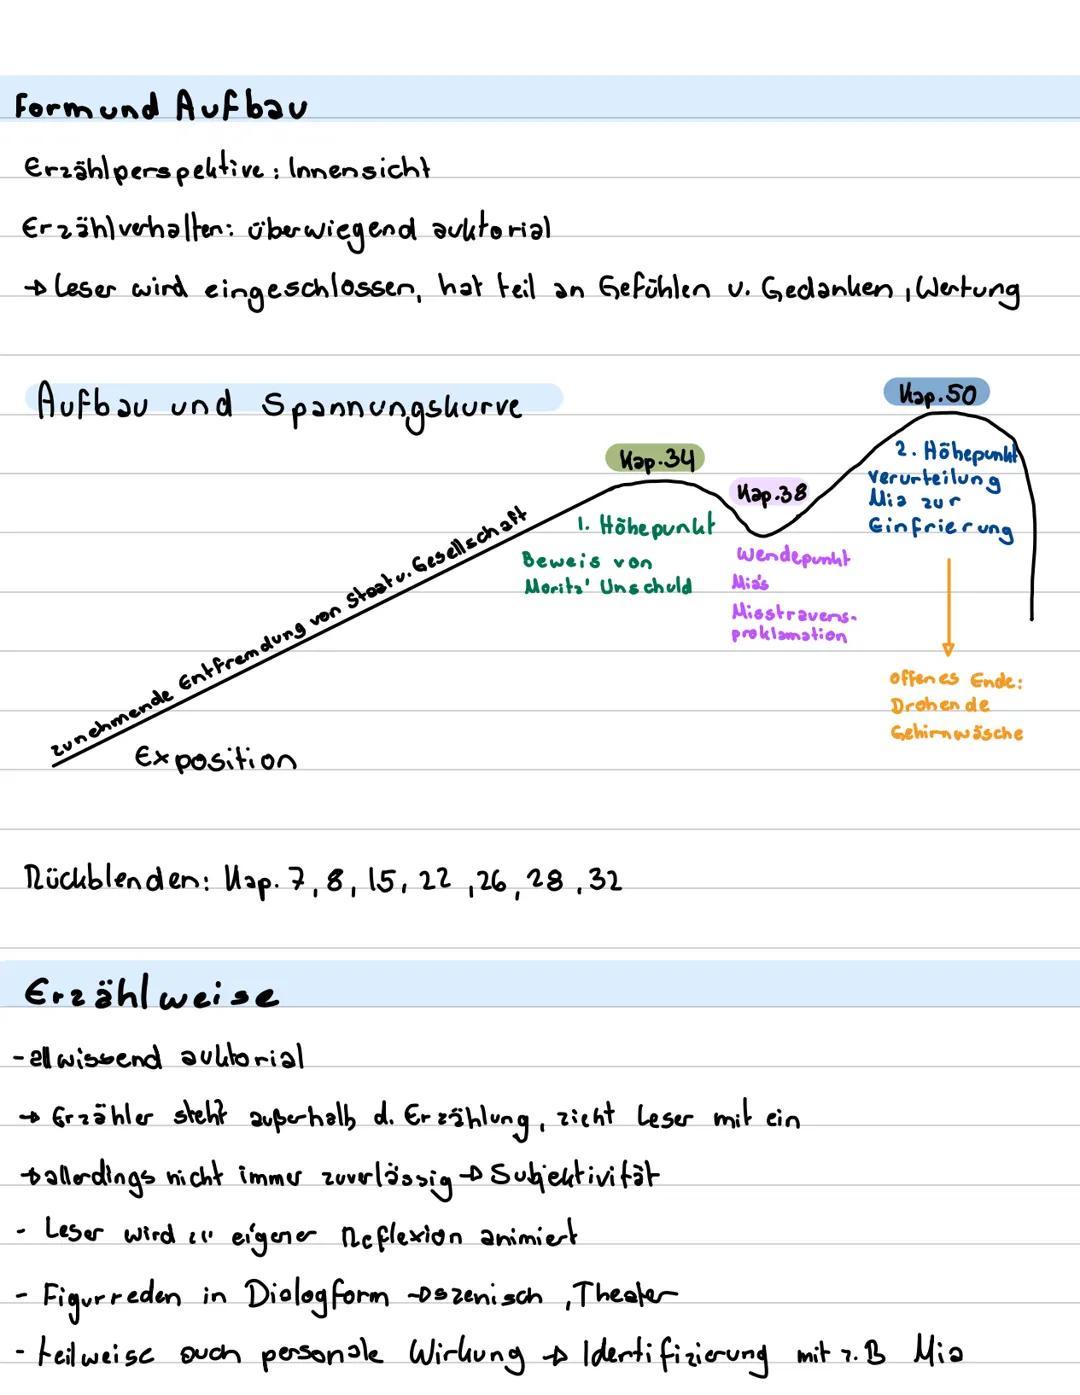 Form und Aufbau
Erzählperspektive: Innensicht
Erzählverhalten: überwiegend auktorial
→ Leser wird eingeschlossen, hat teil an Gefühlen u. Gedanken, Wertung
Aufbau und Spannungskurve
Kap. 50
Kap. 34
Kap. 38
zunehmende Entfremdung von Staat u. Gesellschaft
Exposition
1. Höhepunkt
Beweis von
Moritz' Unschuld
Wendepunkt
Mia's
Misstrauens-
proklamation
2. Höhepunkt
Verurteilung
Mia zur
Einfrierung
offenes Ende:
Drohende
Gehirnwäsche
Rückblenden: Kap. 7, 8, 15, 22, 26, 28, 32
Erzählweise
- allwissend auktorial
→ Erzähler steht außerhalb d. Erzählung, zieht Leser mit ein
→ allerdings nicht immer zuverlässig → Subjektivität
- Leser wird zu eigener Reflexion animiert
- Figurreden in Dialogform → szenisch, Theater
- teilweise auch personale Wirkung → Identifizierung mit z.B Mia